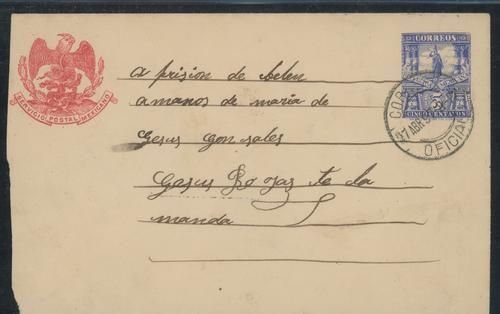 CORREOS
SERVICIO POSTAL MEXICANO
5
CINCO CENTAVOS
27 ABR
OFICIAL
a prision de belen
a manos de maria de
Gesus Gonsales
Gesus Rojas te la
manda